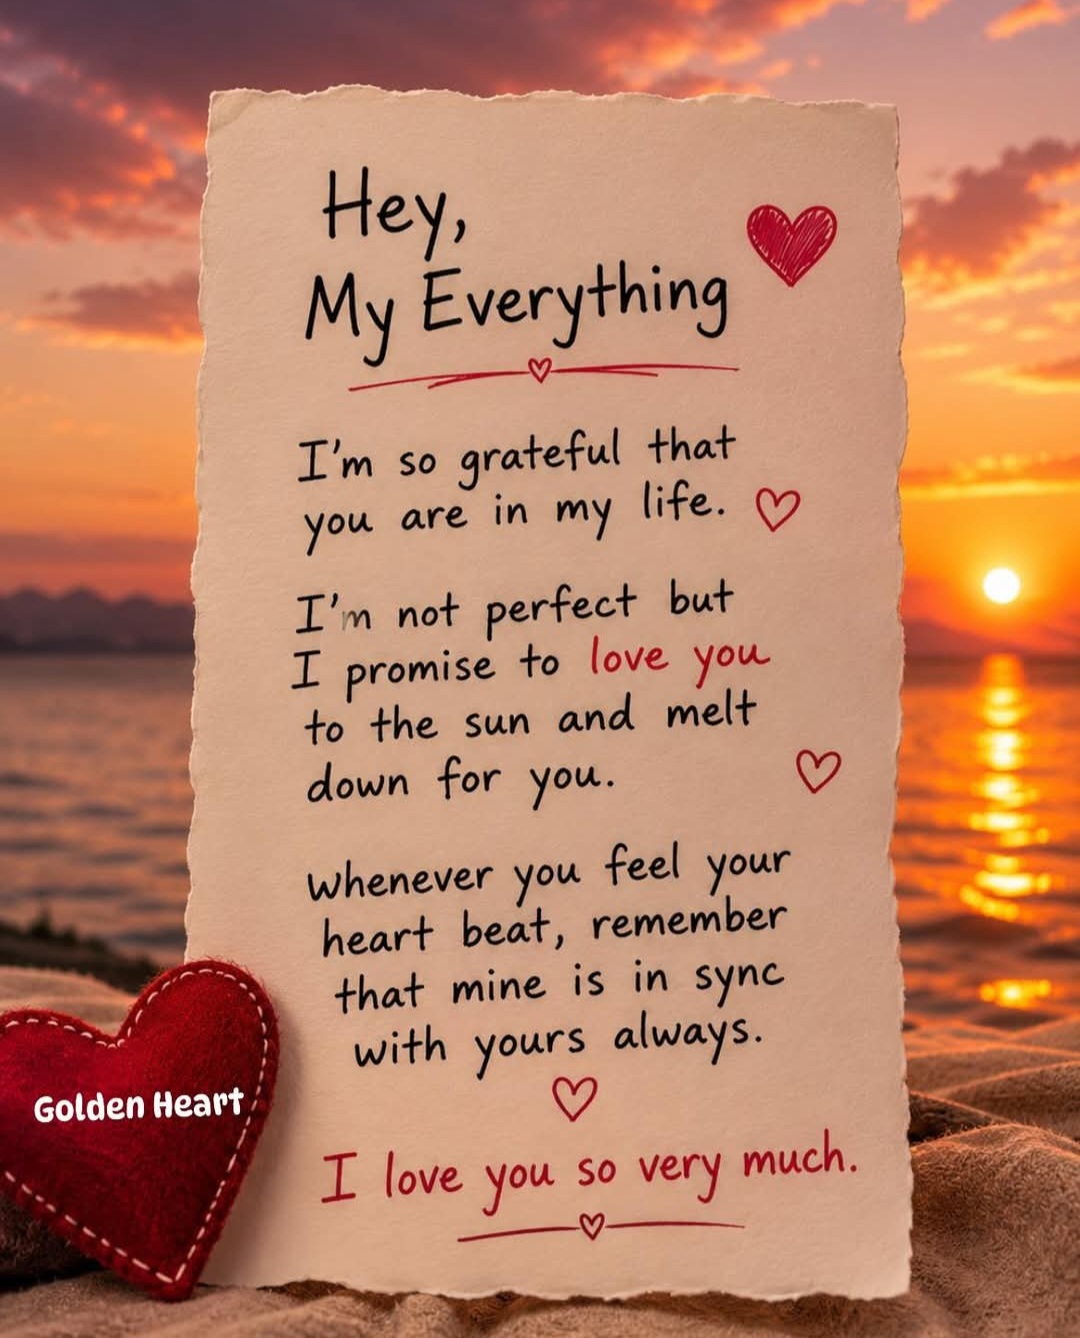 Hey,
My Everything
I'm so grateful that
you are in my life.
I'm not perfect but
I promise to love you
to the sun and melt
down for you.
whenever you feel your
heart beat, remember
that mine is in sync
with yours always.
Golden Heart
I love you so very much.